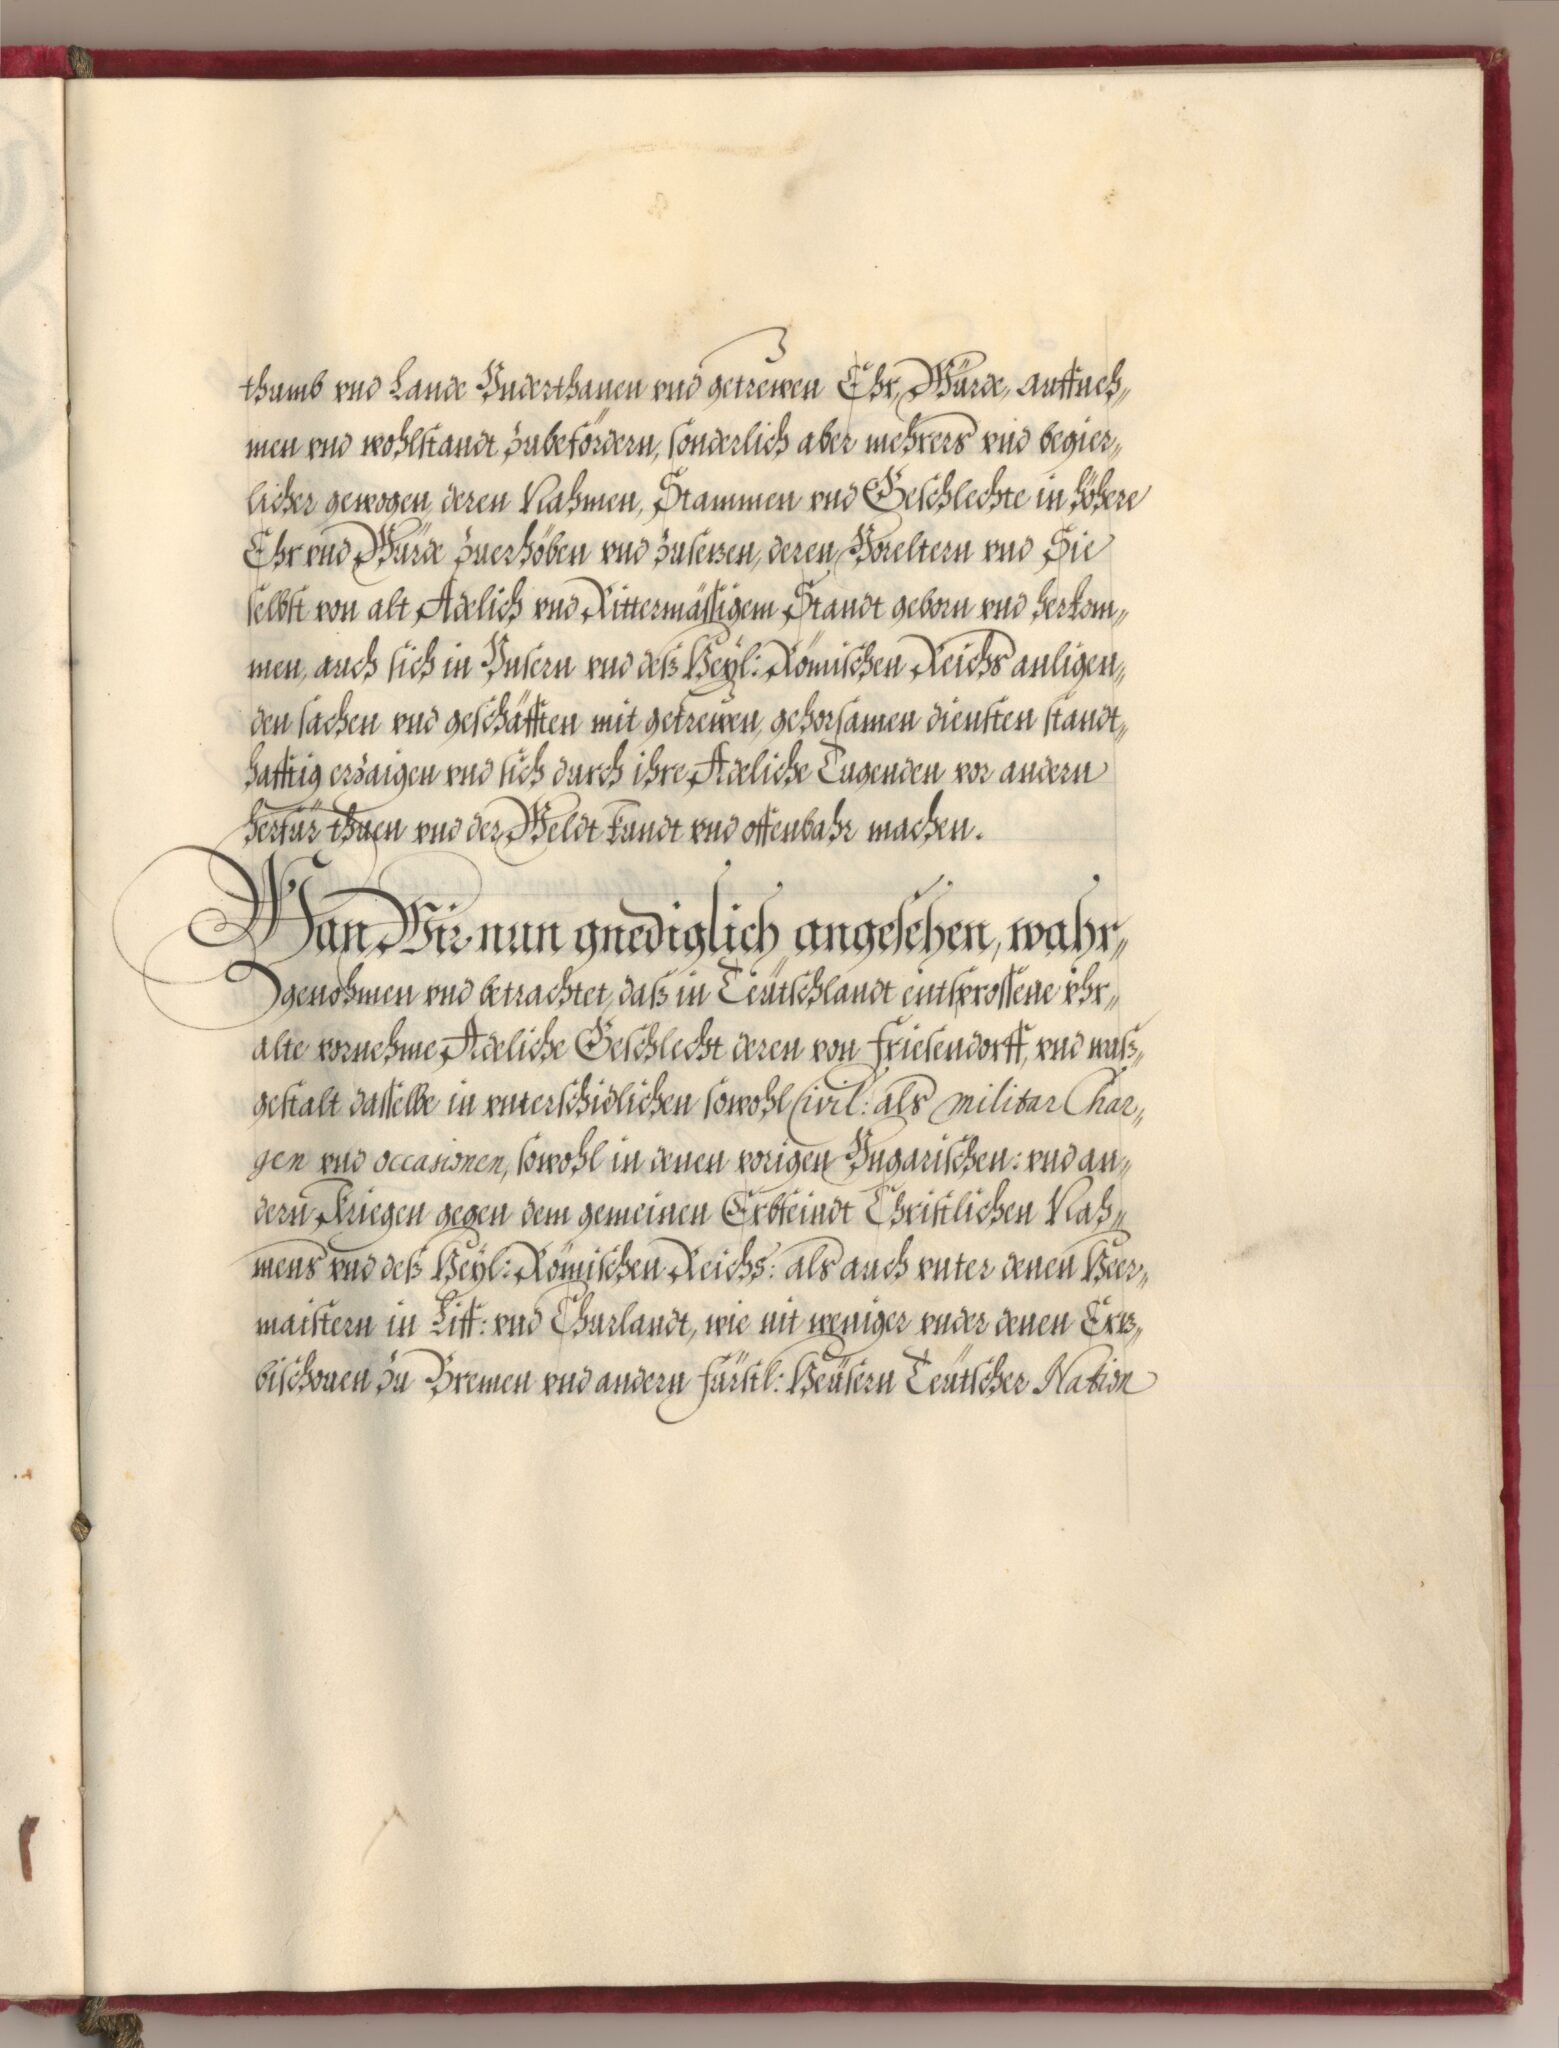 thumb vnd Lande Vnderthanen vnd getrewen Ehr, Würde, auffneh„
men vnd wohlstandt zubefördern, sonderlich aber mehrers vnd begier„
licher gewogen, deren Nahmen, Stammen vnd Geschlechte in höhere
Ehr vnd Würde zuerhöben vnd zusetzen, deren Voreltern vnd Sie
selbst von alt Adelich vnd Rittermässigem Standt geborn vnd herkom„
men, auch sich in Vnsern vnd deß Heyl: Römischen Reichs anligen„
den sachen vnd geschäfften mit getrewen, gehorsamen diensten standt„
hafftig erzaigen vnd sich durch ihre Adeliche Tugenden vor andern
herfür thuen vnd der Weldt kundt vnd offenbahr machen.
Wan Wir nun gnediglich angesehen, wahr„
genohmen vnd betrachtet, daß in Teütschlandt entsprossene vhr„
alte vornehme Adeliche Geschlecht deren von Friesendorff, vnd waß„
gestalt dasselbe in vnterschidlichen sowohl Civil: als militar Char„
gen vnd occasionen, sowohl in denen vorigen Vngarischen: vnd an„
dern Kriegen gegen dem gemeinen Erbfeindt Christlichen Nah„
mens vnd deß Heyl: Römischen Reichs: als auch vnter denen Heer„
maistern in Liff: vnd Churlandt, wie nit weniger vnder denen Ertz„
bischouen zu Bremen vnd andern fürstl: Heüsern Teütscher Nation